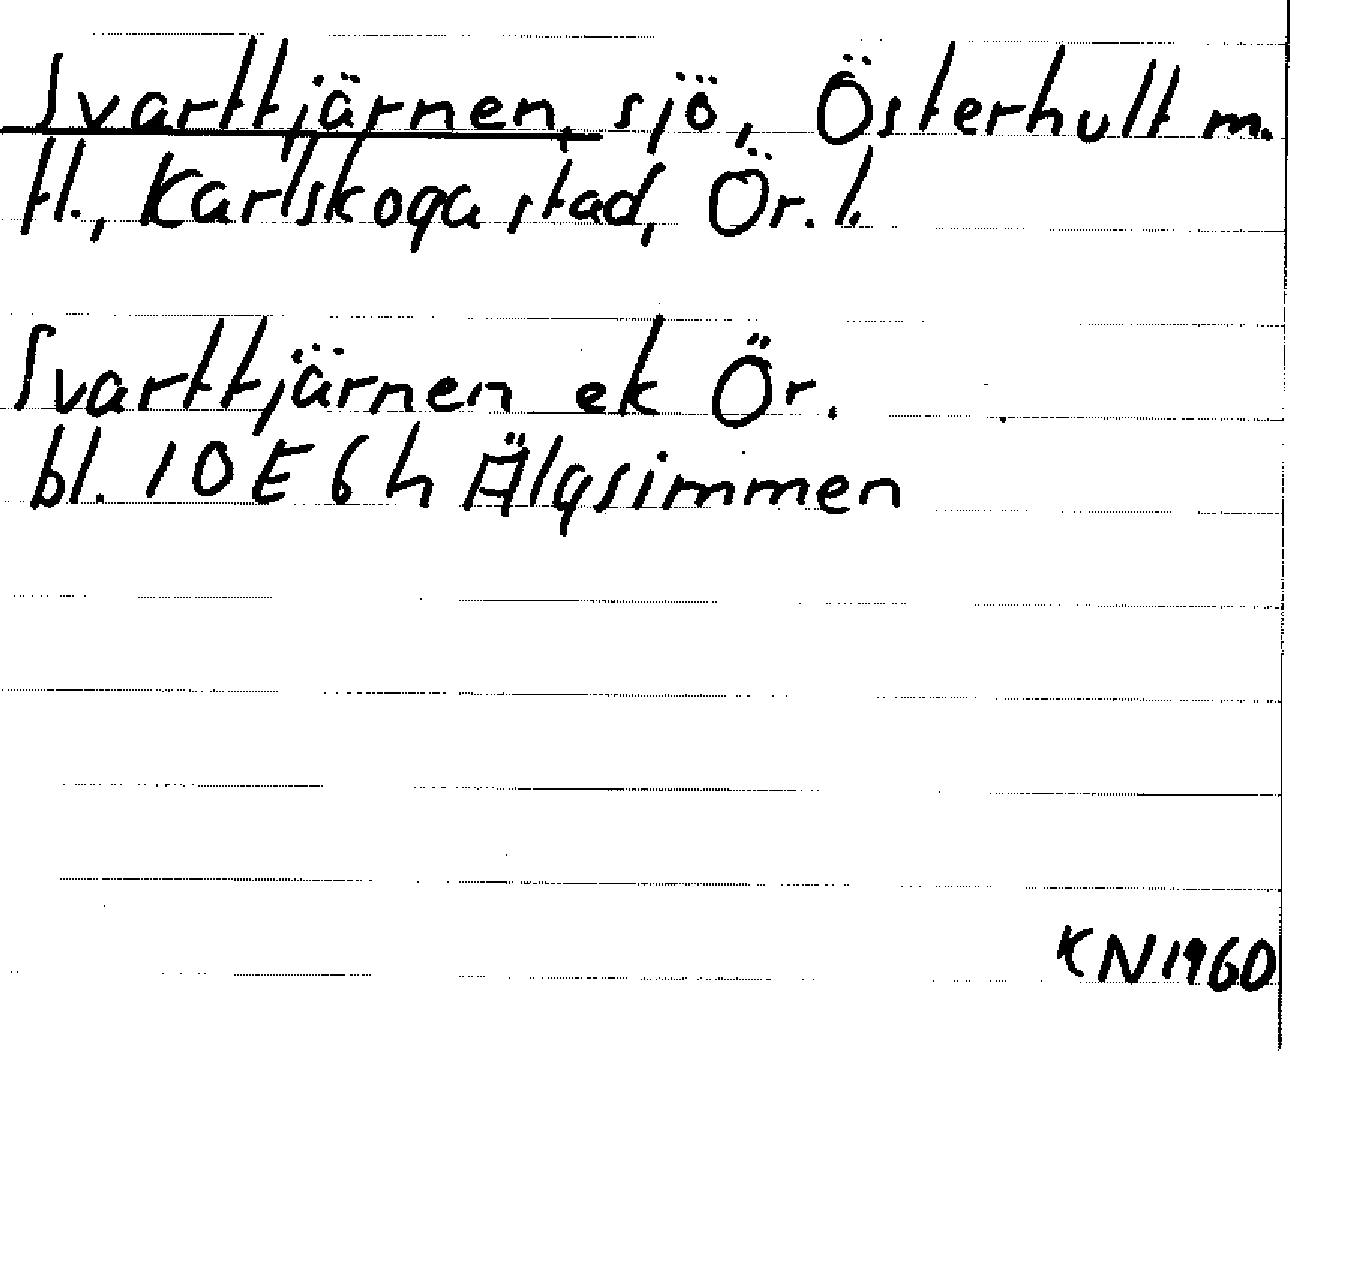 Svarttjärnen, sjö, Österhult m.
fl., Karlskoga stad, Ör. l.
Svarttjärnen ek Ör.
bl. 10E 6h Älgsimmen
KN 1960